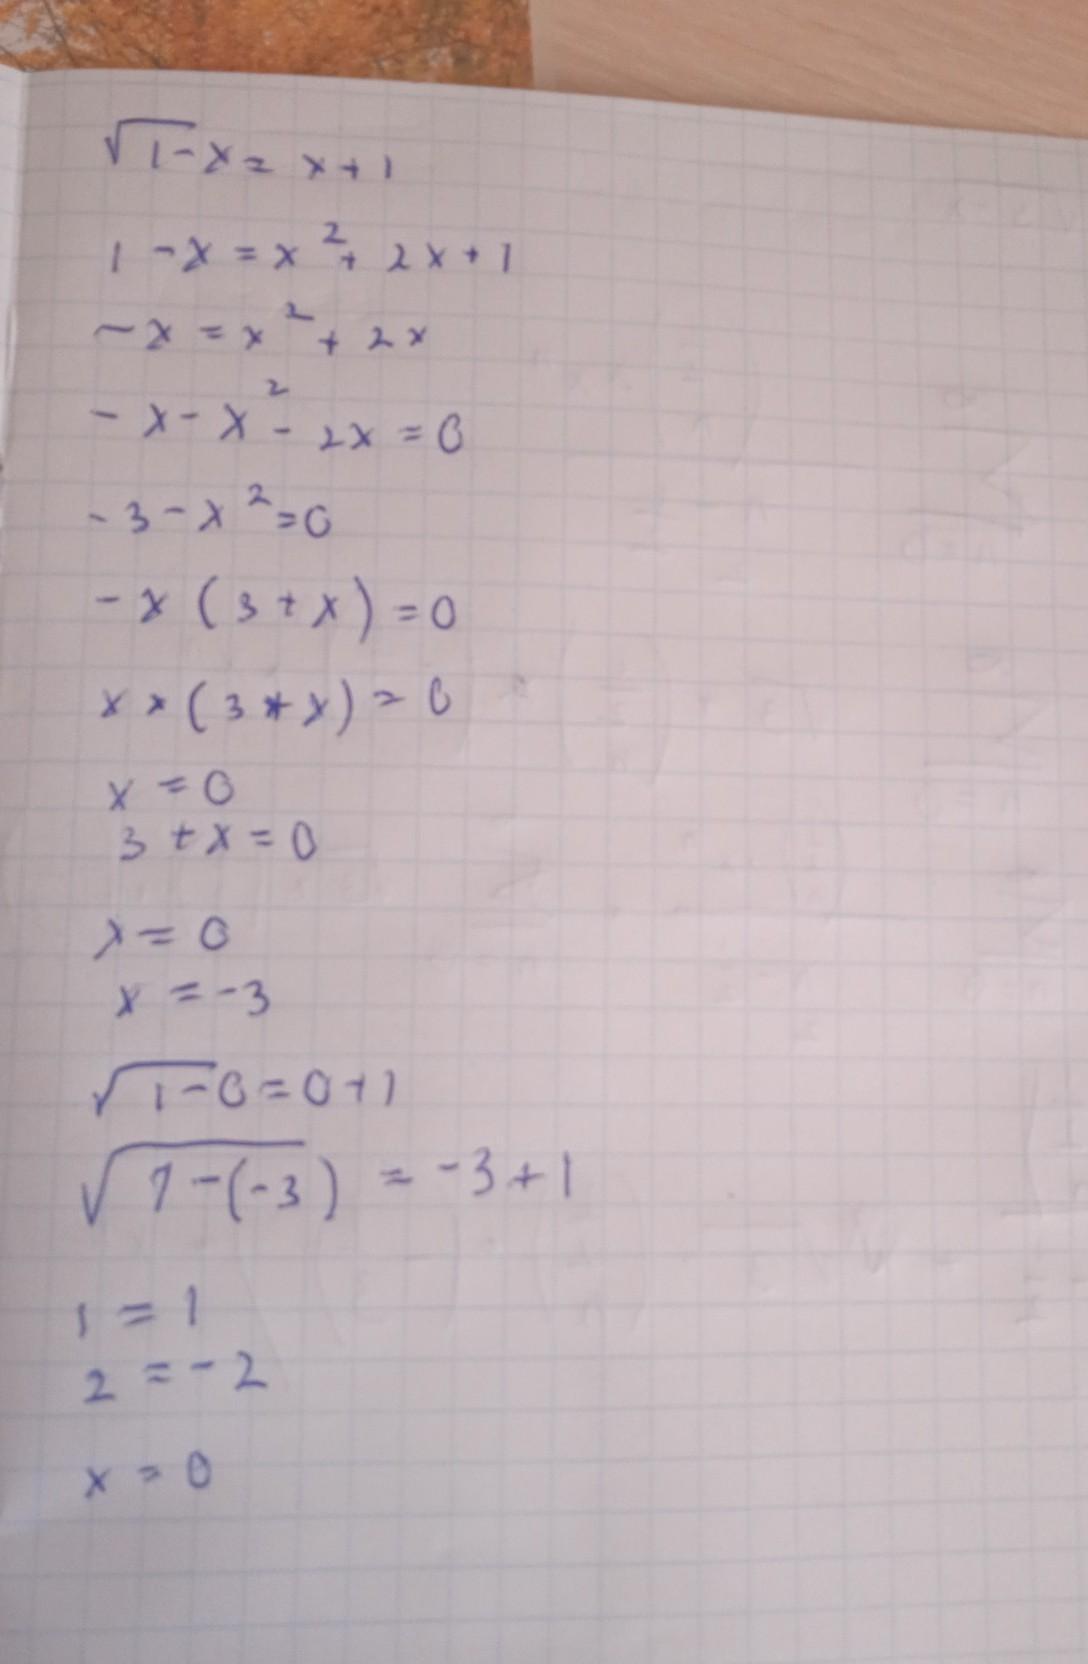 √1-x = x+1
1 - x = x² + 2x + 1
- x = x² + 2x
- x - x² - 2x = 0
- 3 - x² = 0
- x (3 + x) = 0
x × (3 + x) = 0
x = 0
3 + x = 0
x = 0
x = -3
√1-0 = 0+1
√1-(-3) = -3+1
1 = 1
2 = -2
x = 0